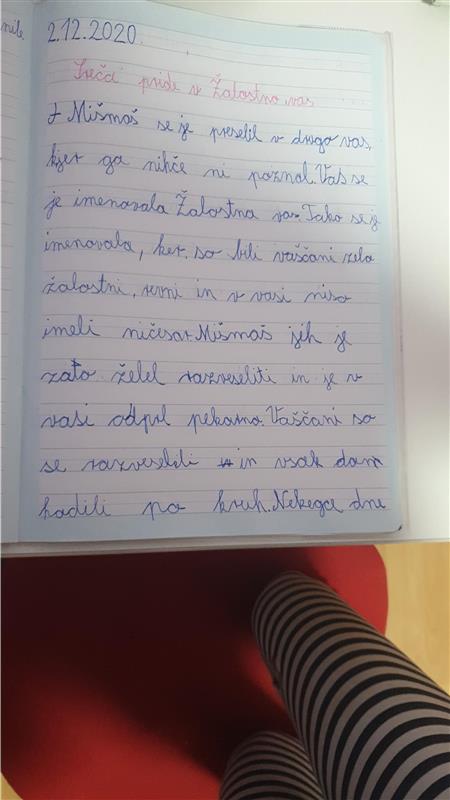 nile.
2.12.2020.
Sreča pride v Žalostno vas
Mišmaš se je preselil v drugo vas,
kjer ga nihče ni poznal. Vas se
je imenovala Žalostna vas. Tako se je
imenovala, ker so bili vaščani zelo
žalostni, revni in v vasi niso
imeli ničesar. Mišmaš jih je
zato želel razveseliti in je v
vasi odprl pekarno. Vaščani so
se razveselili in vsak dan
hodili po kruh. Nekega dne